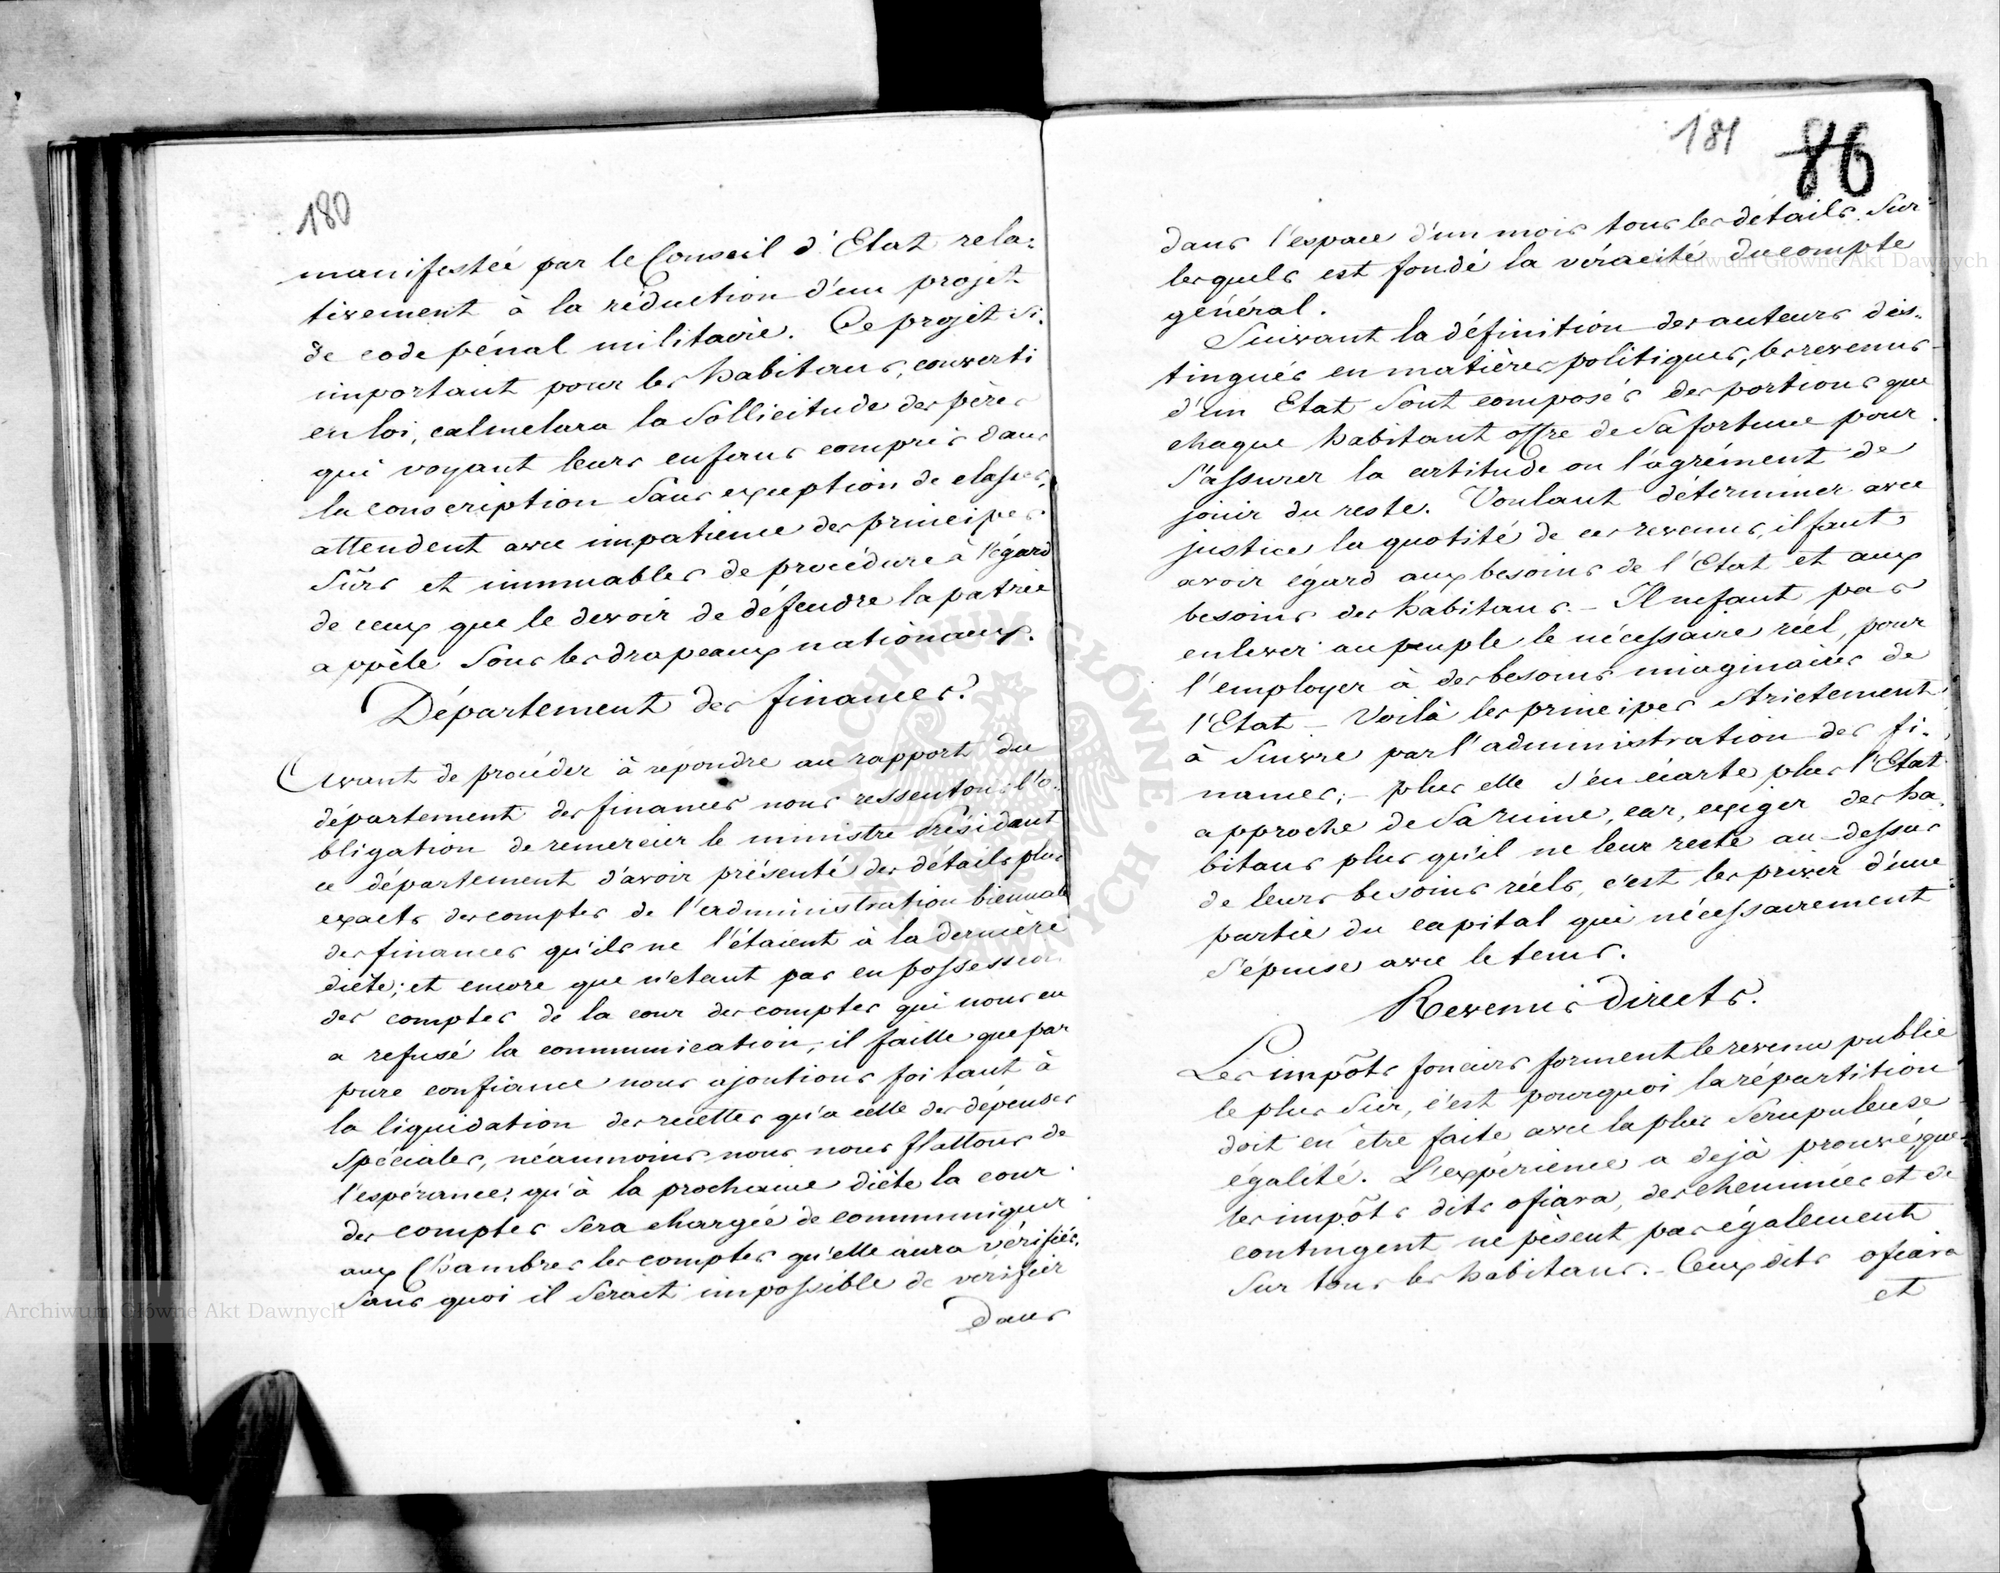 180
manifestée par le Conseil d'Etat rela-
tivement à la réduction d'un projet
de code pénal militaire. Ce projet si
important pour les habitans, converti
en loi, calmelara la sollicitude des pères
qui voyant leurs enfans compris dans
la conscription sans exception de classes,
attendent avec impatience des principes
sûrs et immuables de procédure à l'égard
de ceux que le devoir de défendre la patrie
appèle sous les drapeaux nationaux.
Département des finances.
Avant de procéder à répondre au rapport du
département des finances nous ressentons l'o-
bligation de remercier le ministre Présidant
ce département d'avoir présenté des détails plus
exacts des comptes de l'administration biennale
des finances qu'ils ne l'étaient à la dernière
diète; et encore que n'etant pas en possession
des comptes de la cour des comptes qui nous en
a refusé la communication, il faille que par
pure confiance nous ajoutions foi tant à
la liquidation des recettes qu'a celle des dépenses
spéciales, néanmoins nous nous flattons de
l'espérance, qu'à la prochaine diète la cour
des comptes sera chargée de communiquer
aux Chambres les comptes qu'elle aura vérifiés,
sans quoi il serait impossible de vérifier
dans
181 86
dans l'espace d'un mois tous les détails sur
lesquels est fondé la véracité du compte
général.
Suivant la définition des auteurs dis-
tingués en matières politiques, les revenus
d'un Etat sont composés des portions que
chaque habitant offre de sa fortune pour
s'assurer la certitude ou l'agrément de
jouir du reste. Voulant déterminer avec
justice la quotité de ces revenus, il faut
avoir égard aux besoins de l'Etat et aux
besoins des habitans. - Il ne faut pas
enlever au peuple le nécessaire réel, pour
l'employer à des besoins imaginaires de
l'Etat - Voilà les principes strictement
à suivre par l'administration des fi-
nances; - plus elle s'en écarte plus l'Etat
approche de sa ruine, car, exiger des ha-
bitans plus qu'il ne leur reste au-dessus
de leurs besoins réels, c'est les priver d'une
partie du capital qui nécessairement
s'épuise avec le tems.
Revenus directs.
Les impôts fonciers forment le revenu public
le plus sûr, c'est pourquoi la répartition
doit en être faite avec la plus scrupuleuse
égalité. L'expérience a dejà prouvé, que
les impôts dits ofiara, des cheminées et de
contingent ne pèsent pas également
sur tous les habitans. - Ceux dits ofiara
et
Archiwum Główne Akt Dawnych
Archiwum Główne Akt Dawnych
ARCHIWUM GŁÓWNE AKT DAWNYCH